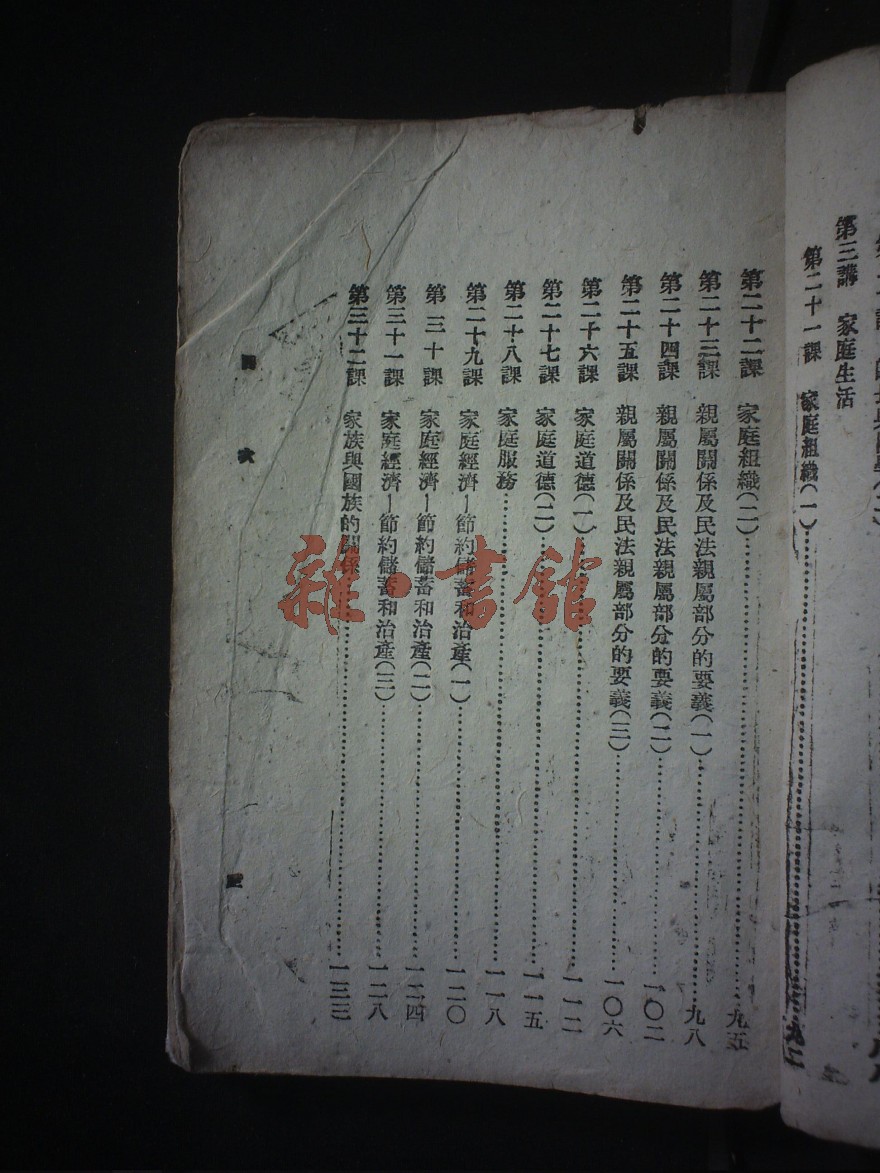 第三講 家庭生活
第二十一課 家庭組織(一)……九二
第二十二課 家庭組織(二)……九五
第二十三課 親屬關係及民法親屬部分的要義(一)……九八
第二十四課 親屬關係及民法親屬部分的要義(二)……一〇二
第二十五課 親屬關係及民法親屬部分的要義(三)……一〇六
第二十六課 家庭道德(一)……一一二
第二十七課 家庭道德(二)……一一五
第二十八課 家庭服務……一一八
第二十九課 家庭經濟—節約儲蓄和治產(一)……一二〇
第三十課 家庭經濟—節約儲蓄和治產(二)……一二四
第三十一課 家庭經濟—節約儲蓄和治產(三)……一二八
第三十二課 家族與國族的關係……一三三
目次
雜·書館